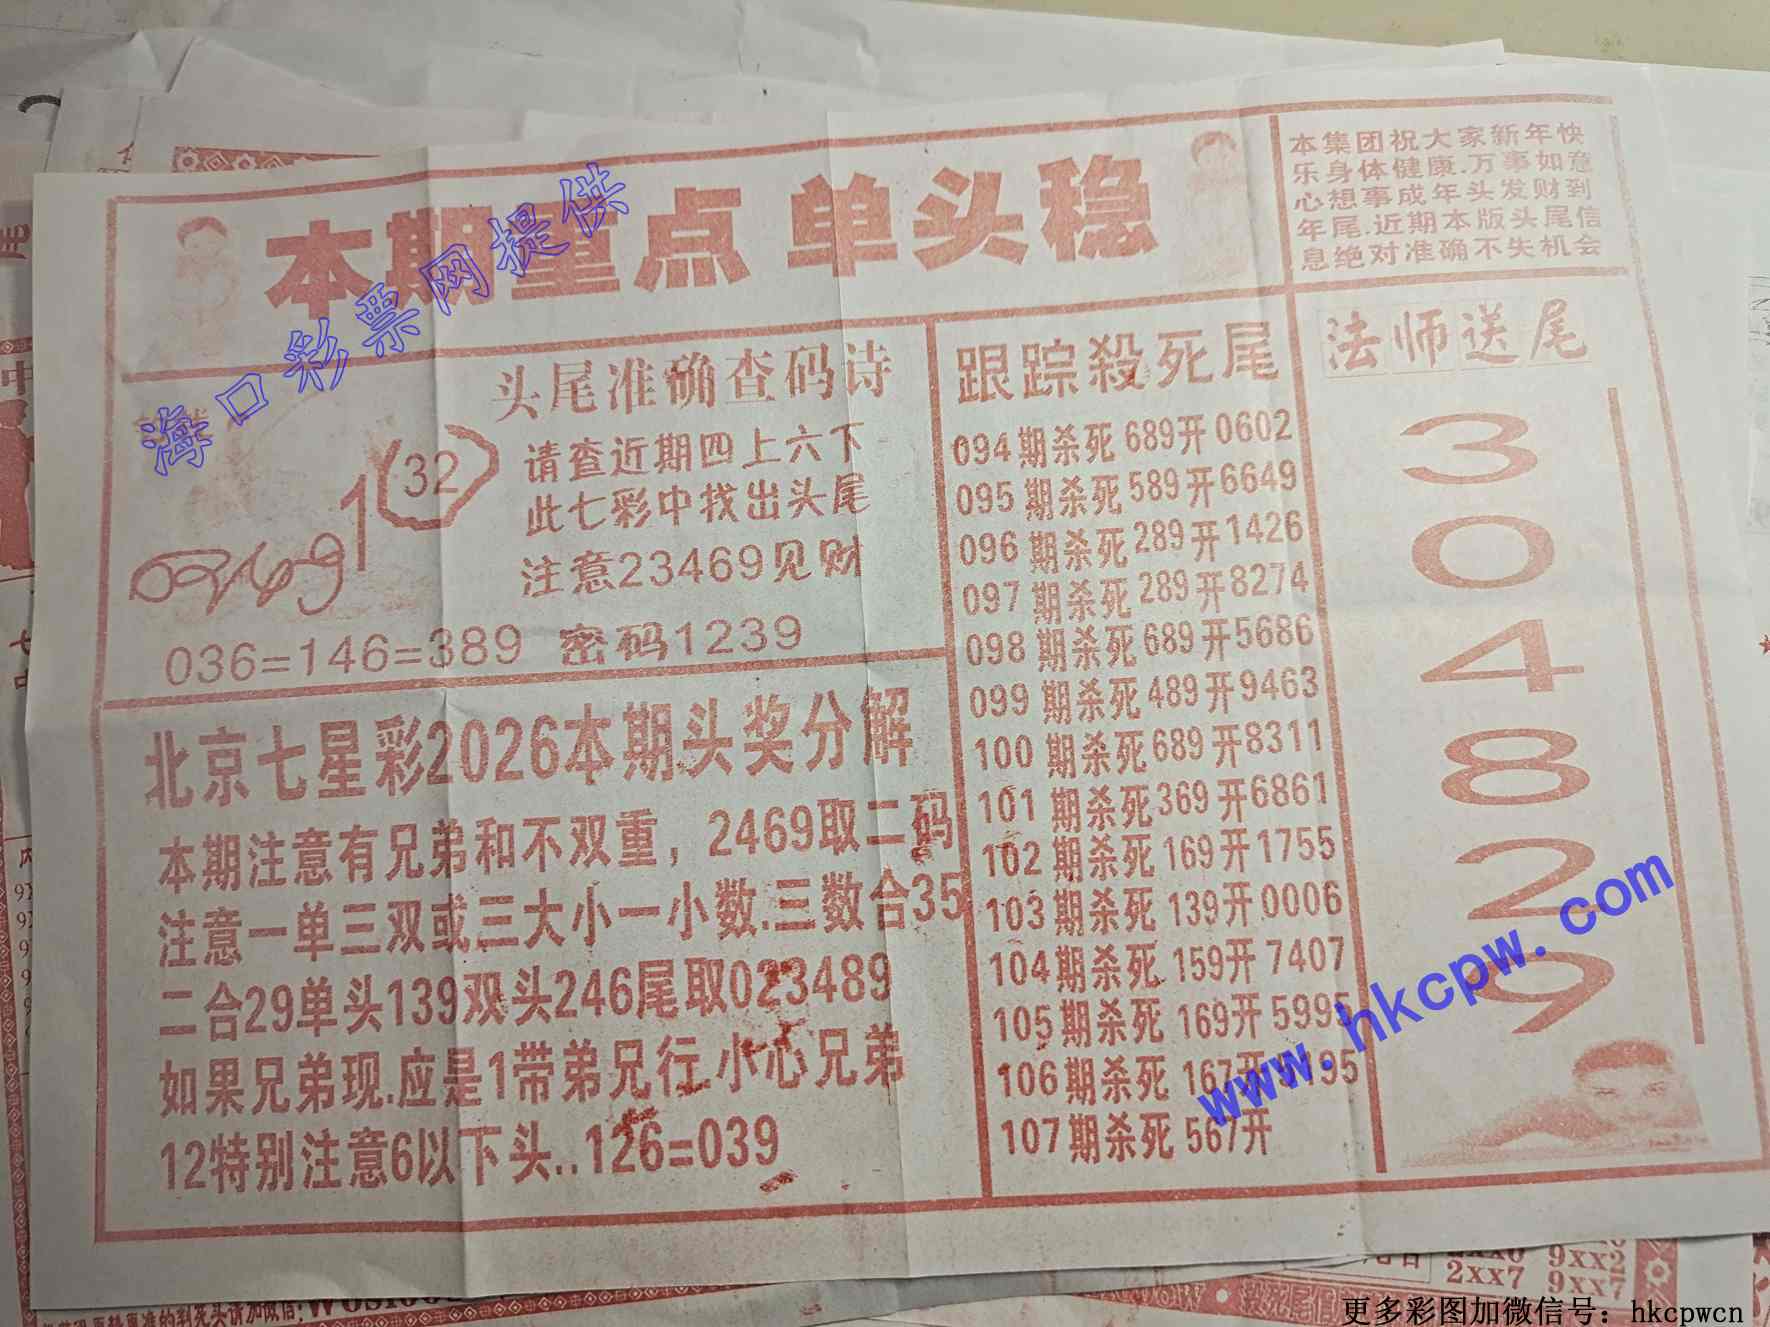 本期重点 单头稳
本集团祝大家新年快
乐身体健康.万事如意
心想事成年头发财到
年尾.近期本版头尾信
息绝对准确不失机会
海口彩票网提供
头尾准确查码诗
1(32)
请查近期四上六下
此七彩中找出头尾
注意23469见财
036=146=389 密码1239
北京七星彩2026本期头奖分解
本期注意有兄弟和不双重，2469取二码
注意一单三双或三大小一小数.三数合35
二合29单头139双头246尾取023489
如果兄弟现.应是1带弟兄行.小心兄弟
12特别注意6以下头..126=039
跟踪殺死尾
094期杀死689开0602
095期杀死589开6649
096期杀死289开1426
097期杀死289开8274
098期杀死689开5686
099期杀死489开9463
100期杀死689开8311
101期杀死369开6861
102期杀死169开1755
103期杀死139开0006
104期杀死159开7407
105期杀死169开5995
106期杀死167开195
107期杀死567开
法师送尾
3
0
4
8
2
9
www.hkcpw.com
9xx2
2xx7 9xx7
更多彩图加微信号：hkcpwcn